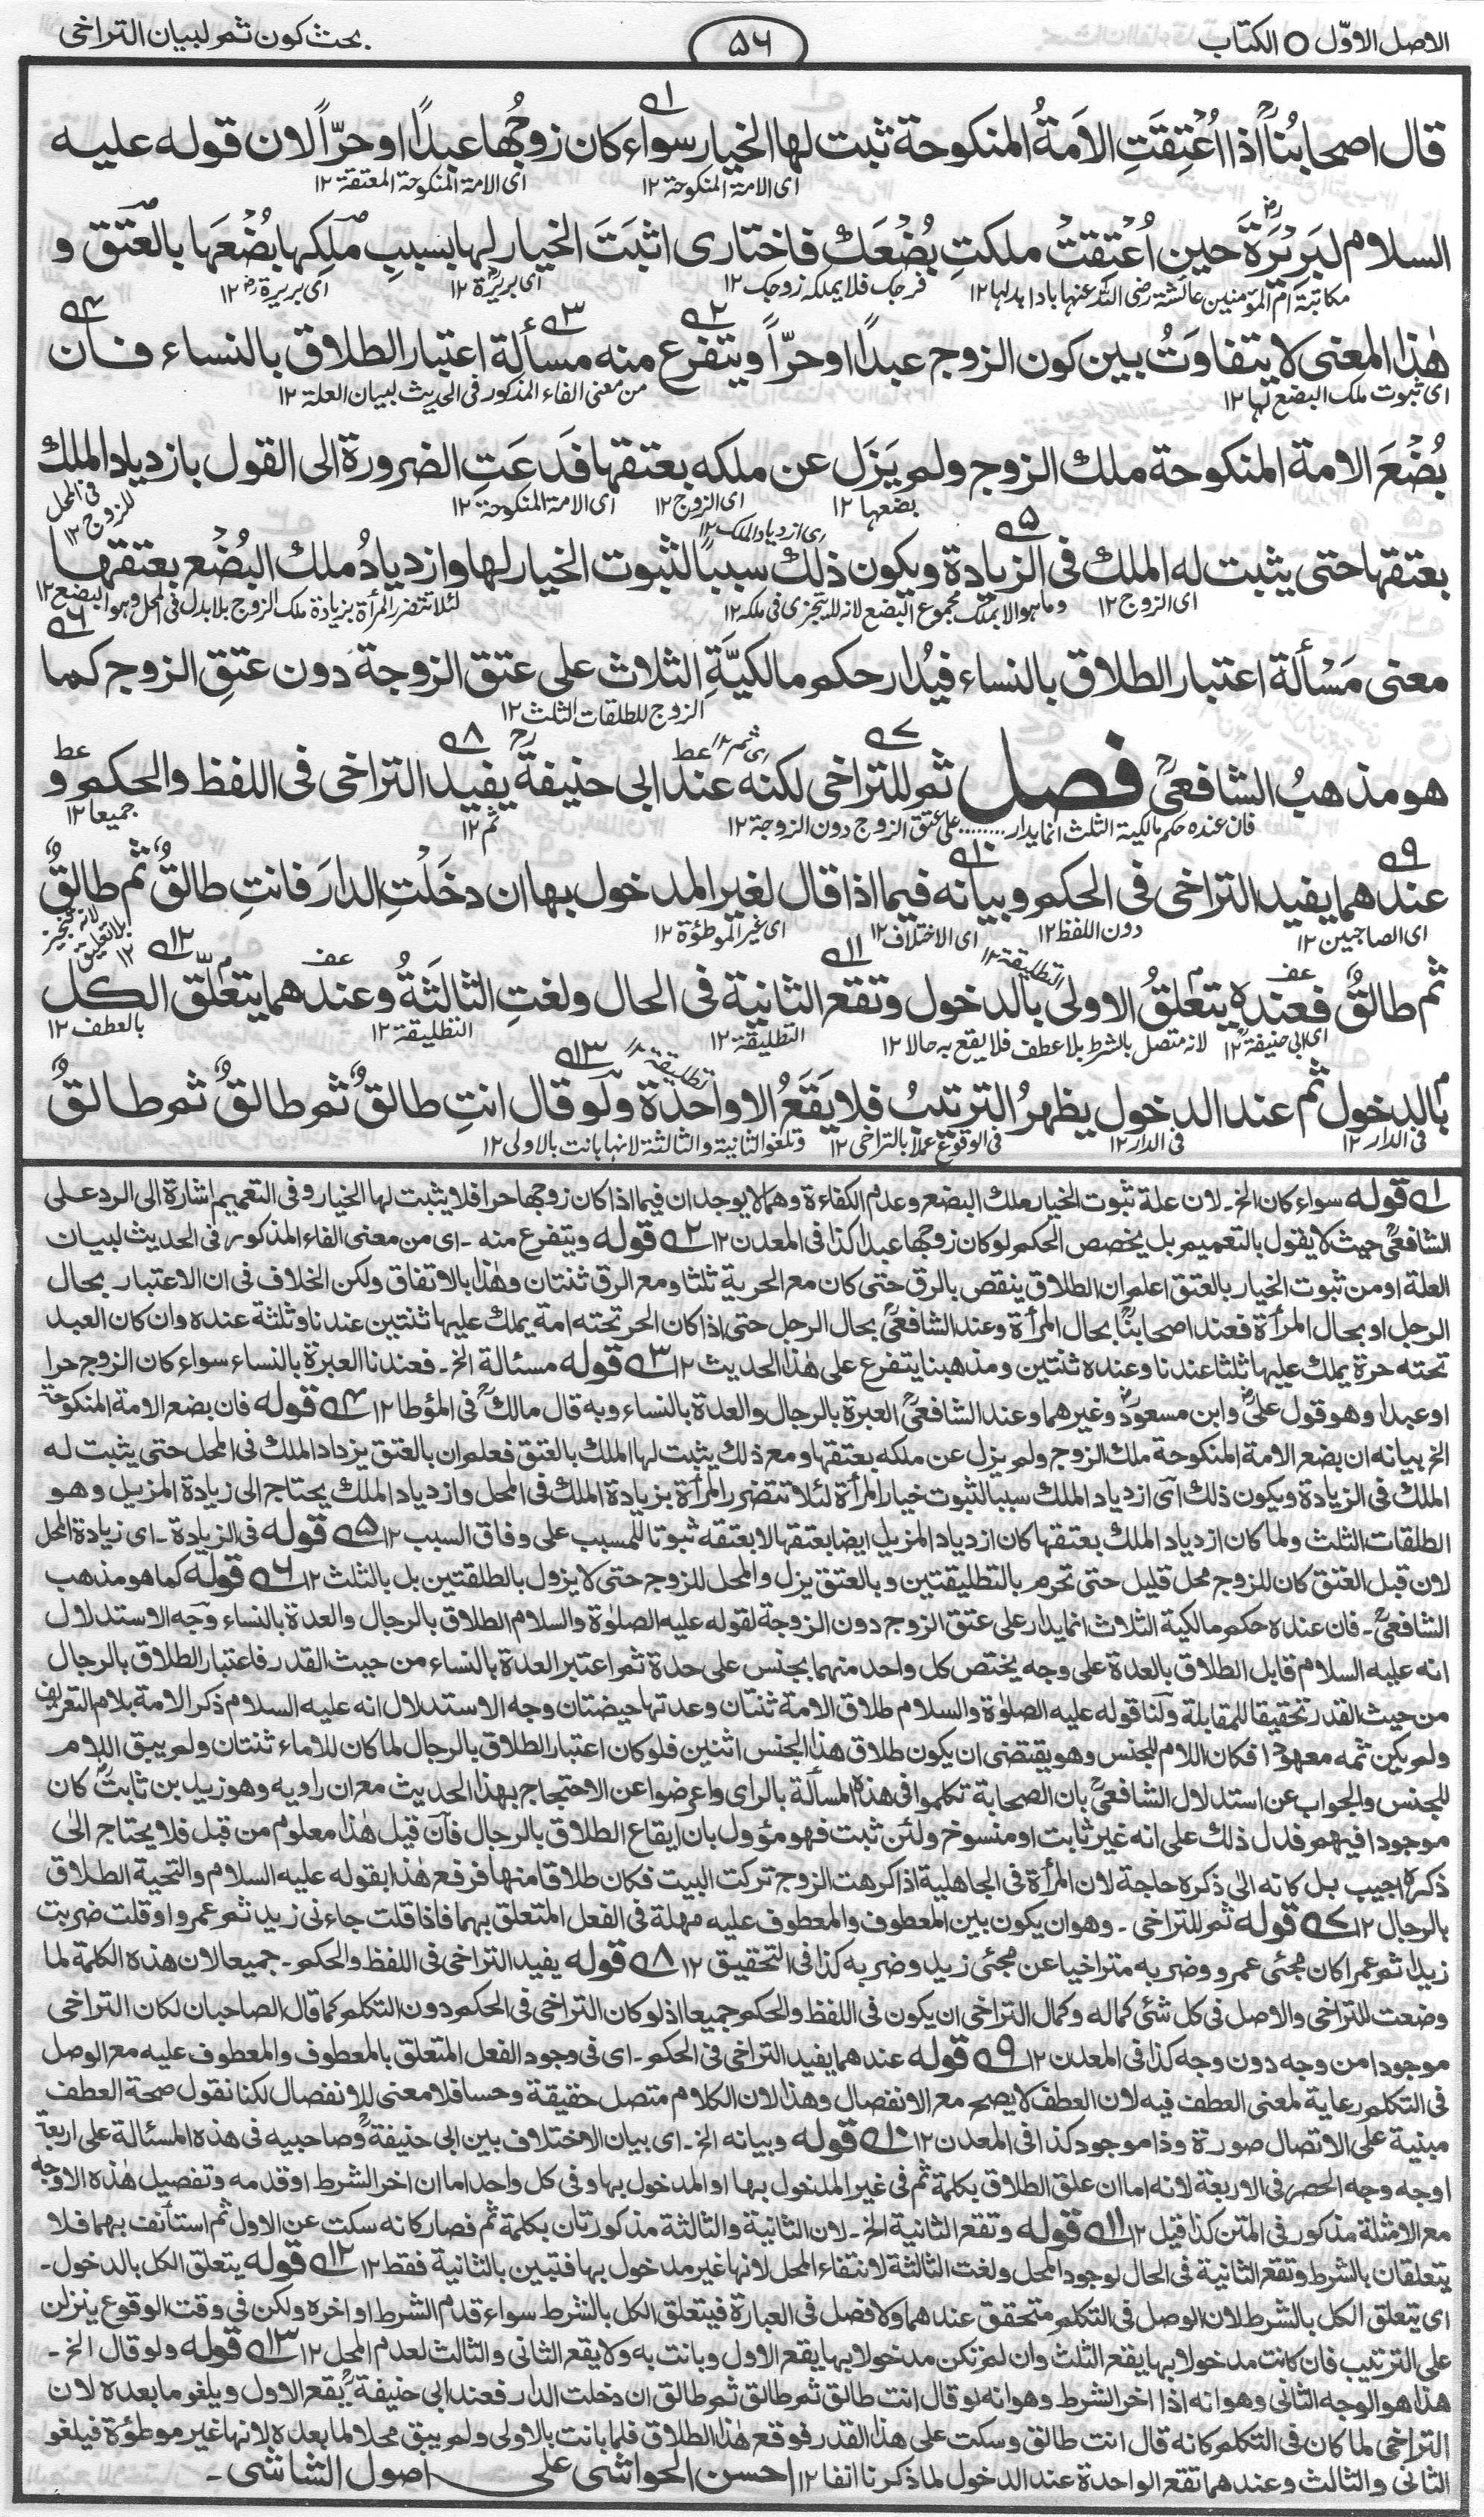 الاصل الاوّل O الكتاب
۵۶
بحث كون ثم لبيان التراخى
قال اصحابُنَاؒ اذا اُعْتِقَتِ الاَمَةُ المنكوحة ثبت لها الخيار سواء كان زوجُها عبدًا او حرّاً لان قوله عليه
اى الامة المنكوحة ١٢ اى الامة المنكوحة المعتقة ١٢
السلام لبَرِيْرَةَ حين اُعْتِقتْ ملكتِ بُضْعَكِ فاختارى اثبَتَ الخيار لها بسببِ مِلكِها بُضْعَهَا بالعتق و
مكاتبة ام المؤمنين عائشة رضى الله عنها بادا بدلها ١٢ فرجك فلا يملكه زوجك ١٢ اى بريرة ١٢ اى بريرة ١٢
هٰذا المعنى لا يتفاوَتُ بين كون الزوج عبدًا او حرّاً ويتفرع منه مسألة اعتبار الطلاق بالنساء فان
اى ثبوت ملك البضع لها ١٢ من معنى الفاء المذكور فى الحديث لبيان العلة ١٢
بُضْعَ الامة المنكوحة ملك الزوج ولم يَزَل عن ملكه بعتقها فَدَعَتِ الضرورة الى القول بازدياد الملك
بضعها ١٢ اى الزوج ١٢ اى الامة المنكوحة ١٢ فى المحل للزوج ١٢
بعتقها حتى يثبت له الملك فى الزيادة ويكون ذلك سبباً لثبوت الخيار لها وازديادُ ملك البُضْع بعتقها
اى ازدياد الملك ١٢ اى الزوج ١٢ لئلا تتضرر المرأة بزيادة ملك الزوج بلا بدل فى المحل وهو البضع ١٢
معنى مَسْألة اعتبار الطلاق بالنساء فيُدار حكم مالكيَّةِ الثلاث على عتق الزوجة دون عتقِ الزوج كما
الزوج للطلقات الثلث ١٢
هو مذهبُ الشافعىؒ فصل ثم للتراخى لكنه عند ابى حنيفةؒ يفيد التراخى فى اللفظ والحكم و
فان عنده حكم مالكية الثلث انما يدار ........ على عتق الزوج دون الزوجة ١٢ ثم ١٢ جميعا ١٢
عندهما يفيد التراخى فى الحكم وبيانه فيما اذا قال لغير المدخول بها ان دخَلْتِ الدارَ فانتِ طالقٌ ثم طالقٌ
اى الصاحبين ١٢ دون اللفظ ١٢ اى الاختلاف ١٢ اى غير الموطؤة ١٢ لانه تنجيز بلا تعليق ١٢
ثم طالقٌ فعنده يتعلقُ الاولى بالدخول وتقع الثانية فى الحال ولغتِ الثالثَةُ وعندهما يتعلّق الكل
اى ابى حنيفة ١٢ لانه متصل بالشرط بلا عطف فلا يقع به حالا ١٢ التطليقة ١٢ التطليقة ١٢ بالعطف ١٢
بالدخول ثم عند الدخول يظهرُ الترتيبُ فلا يَقَعُ الا واحدة ولو قال انتِ طالقٌ ثم طالقٌ ثم طالقٌ
فى الدار ١٢ فى الدار ١٢ فى الوقوع عملا بالتراخى ١٢ وتلغو الثانية والثالثة لانها بانت بالاولى ١٢
١ قوله سواء كان الخ۔ لان علة ثبوت الخيار ملك البضع وعدم الكفاءة وهما لا يوجدان فيما اذا كان زوجها حرا فلا يثبت لها الخيار وفى التعميم اشارة الى الرد على
الشافعىؒ حيث لا يقول بالتعميم بل يخصص الحكم لو كان زوجها عبدا كذا فى المعدن ١٢ ٢ قوله ويتفرع منه ۔ اى من معنى الفاء المذكور فى الحديث لبيان
العلة او من ثبوت الخيار بالعتق اعلم ان الطلاق ينقص بالرق حتى كان مع الحرية ثلثا ومع الرق ثنتان وهٰذا بالاتفاق ولكن الخلاف فى ان الاعتبار بحال
الرجل او بحال المرأة فعند اصحابناؒ بحال المرأة وعند الشافعىؒ بحال الرجل حتى اذا كان الحر تحته امة يملك عليها ثنتين عندنا وثلثة عنده وان كان العبد
تحته حرة يملك عليها ثلثا عندنا وعنده ثنتين ومذهبنا يتفرع على هٰذا الحديث ١٢ ٣ قوله مسئالة الخ۔ فعندنا العبرة بالنساء سواء كان الزوج حرا
او عبدا وهو قول علىؓ وابن مسعودؓ وغيرهما وعند الشافعىؒ العبرة بالرجال والعدة بالنساء وبه قال مالكؒ فى المؤطا ١٢ ٤ قوله فان بضع الامة المنكوحة
الخ بيانه ان بضع الامة المنكوحة ملك الزوج ولم يزل عن ملكه بعتقها ومع ذلك يثبت لها الملك بالعتق فعلم ان بالعتق يزداد الملك فى المحل حتى يثبت له
الملك فى الزيادة ويكون ذلك اى ازدياد الملك سببا لثبوت خيار المرأة لئلا تتضرر المرأة بزيادة الملك فى المحل وازدياد الملك يحتاج الى زيادة المزيل وهو
الطلقات الثلث ولما كان ازدياد الملك بعتقها كان ازدياد المزيل ايضا بعتقها لا بعتقه ثبوتا للمسبب على وفاق السبب ١٢ ۵ قوله فى الزيادة ۔ اى زيادة المحل
لان قبل العتق كان للزوج محل قليل حتى تحرم بالتطليقتين وبالعتق يزل والمحل للزوج حتى لا يزول بالطلقتين بل بالثلث ١٢ ٦ قوله كما هو مذهب
الشافعىؒ ۔ فان عنده حكم مالكية الثلاث انما يدار على عتق الزوج دون الزوجة لقوله عليه الصلوٰة والسلام الطلاق بالرجال والعدة بالنساء وجه الاستدلال
انه عليه السلام قابل الطلاق بالعدة على وجه يختص كل واحد منهما بجنس على حدة ثم اعتبر العدة بالنساء من حيث القدر فاعتبار الطلاق بالرجال
من حيث القدر تحقيقا للمقابلة ولنا قوله عليه الصلوٰة والسلام طلاق الامة ثنتان وعدتها حيضتان وجه الاستدلال انه عليه السلام ذكر الامة بلام التعريف
ولم يكن ثمه معهودا فكان اللام للجنس وهو يقتضى ان يكون طلاق هذا الجنس اثنين فلو كان اعتبار الطلاق بالرجال لما كان للاماء ثنتان ولم يبق اللام
للجنس والجواب عن استدلال الشافعىؒ بان الصحابة تكلموا فى هذه المسألة بالراى واعرضوا عن الاحتجاج بهذا الحديث مع ان راويه وهو زيد بن ثابتؓ كان
موجودا فيهم فدل ذلك على انه غير ثابت او منسوخ ولئن ثبت فهو مؤول بان ايقاع الطلاق بالرجال فان قيل هٰذا معلوم من قبل فلا يحتاج الى
ذكره اجيب بل كانه الى ذكره حاجة لان المرأة فى الجاهلية اذا كرهت الزوج تركت البيت فكان طلاقا منها فرفع هٰذا بقوله عليه السلام والتحية الطلاق
بالرجال ١٢ ٧ قوله ثم للتراخى ۔ وهو ان يكون بين المعطوف والمعطوف عليه مهلة فى الفعل المتعلق بهما فاذا قلت جاءنى زيد ثم عمرو او قلت ضربت
زيدا ثم عمرا كان مجئى عمرو وضربه متراخيا عن مجئى زيد وضربه كذا فى التحقيق ١٢ ٨ قوله يفيد التراخى فى اللفظ والحكم۔ جميعا لان هذه الكلمة لما
وضعت للتراخى والاصل فى كل شئى كماله وكمال التراخى ان يكون فى اللفظ والحكم جميعا اذ لو كان التراخى فى الحكم دون التكلم كما قال الصاحبان لكان التراخى
موجودا من وجه دون وجه كذا فى المعدن ١٢ ٩ قوله عندهما يفيد التراخى فى الحكم۔ اى فى وجود الفعل المتعلق بالمعطوف والمعطوف عليه مع الوصل
فى التكلم رعاية لمعنى العطف فيه لان العطف لا يصح مع الانفصال وهذا لان الكلام متصل حقيقة وحسا فلا معنى للانفصال لكنا نقول صحة العطف
مبنية على الاتصال صورة وذا موجود كذا فى المعدن ١٢ ١٠ قوله وبيانه الخ۔ اى بيان الاختلاف بين ابى حنيفةؒ وصاحبيه فى هذه المسئالة على اربعة
اوجه وجه الحصر فى الاربعة لانه اما ان علق الطلاق بكلمة ثم فى غير المدخول بها او المدخول بها وفى كل واحد اما ان اخر الشرط او قدمه وتفصيل هٰذه الاوجه
مع الامثلة مذكور فى المتن كذا قيل ١٢ ١١ قوله وتقع الثانية الخ۔ لان الثانية والثالثة مذكورتان بكلمة ثم فصار كانه سكت عن الاول ثم استأنف بهما فلا
يتعلقان بالشرط وتقع الثانية فى الحال لوجود المحل ولغت الثالثة لانتفاء المحل لانها غير مدخول بها فتبين بالثانية فقط ١٢ ١٢ قوله يتعلق الكل بالدخول۔
اى يتعلق الكل بالشرط لان الوصل فى التكلم متحقق عندهما ولا فصل فى العبارة فيتعلق الكل بالشرط سواء قدم الشرط او اخره ولكن فى وقت الوقوع ينزلن
على الترتيب فان كانت مدخولا بها يقع الثلث وان لم تكن مدخولا بها يقع الاول وبانت به ولا يقع الثانى والثالث لعدم المحل ١٢ ١٣ قوله ولو قال الخ۔
هذا هو الوجه الثانى وهو انه اذا اخر الشرط وهو انه لو قال انت طالق ثم طالق ثم طالق ان دخلت الدار فعند ابى حنيفةؒ يقع الاول ويلغو ما بعده لان
التراخى لما كان فى التكلم كانه قال انت طالق وسكت على هذا القدر فوقع هٰذا الطلاق فلما بانت بالاولى ولم يبق محلا لما بعده لانها غير موطؤة فيلغو
الثانى والثالث وعندهما تقع الواحدة عند الدخول لما ذكرنا انفا ١٢ احسن الحواشى على اصول الشاشى۔